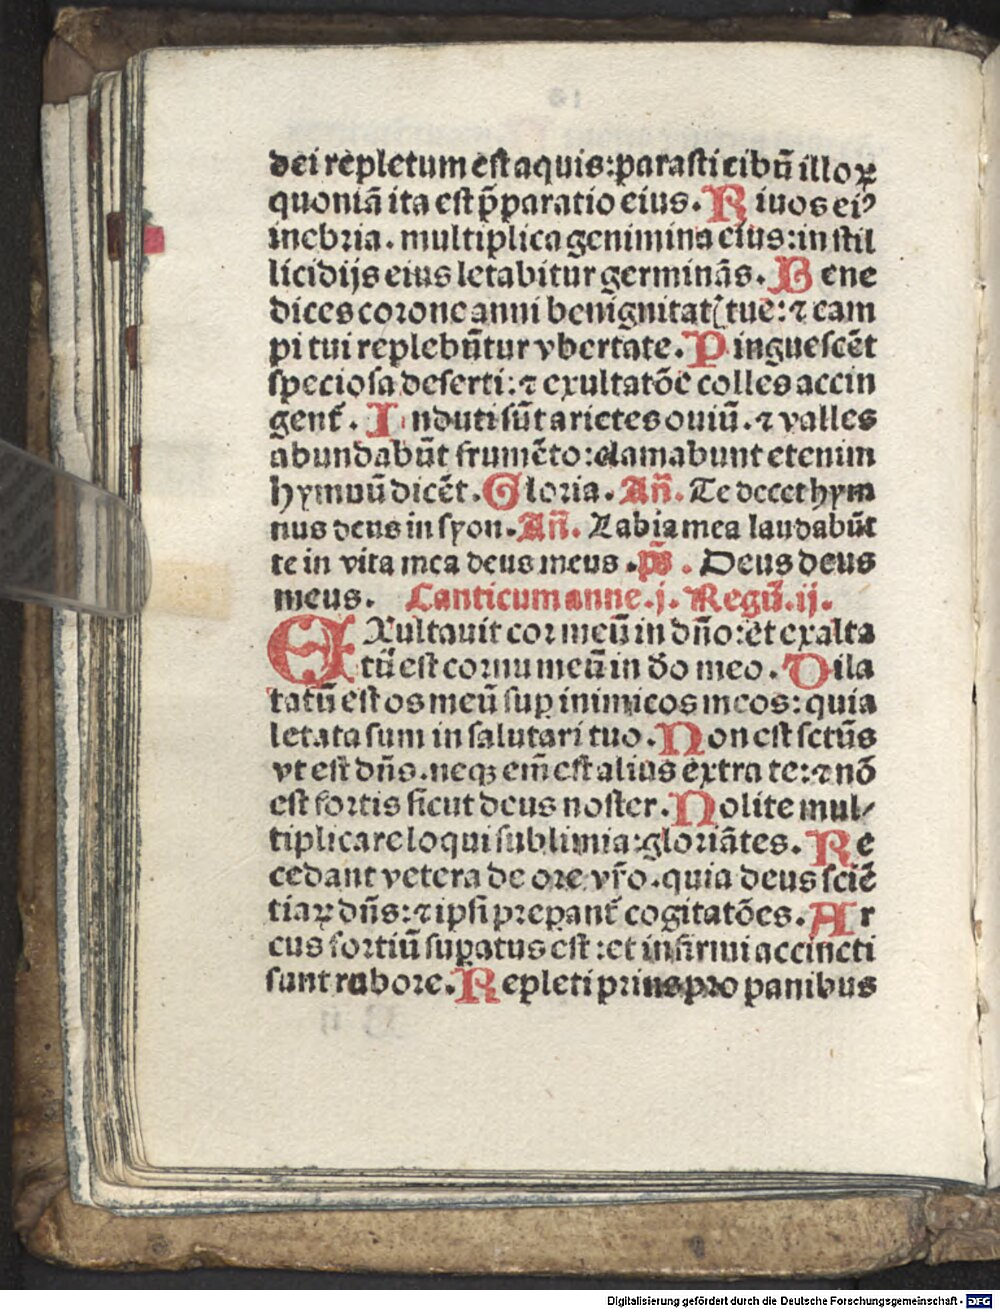 dei repletum est aquis: parasti cibū illoꝝ
quoniā ita est p̄paratio eius. Riuos eiꝰ
inebria. multiplica genimina eius: in stil
licidijs eius letabitur germinās. Bene
dices corone anni benignitatꝭ tue: ⁊ cam
pi tui replebūtur vbertate. Pinguescēt
speciosa deserti: ⁊ exultatōe colles accin
gent᷑. Induti sūt arietes ouiū. ⁊ valles
abundabūt frumēto: clamabunt etenim
hymnū dicēt. Gloria. Añ. Te decet hym
nus deus in syon. Añ. Labia mea laudabūt
te in vita mea deus meus. p̄s. Deus deus
meus. Canticum anne. j. Regū. ij.
EXultauit cor meū in dño: et exalta
tū est cornu meū in dō meo. Dila
tatū est os meū suꝑ inimicos meos: quia
letata sum in salutari tuo. Non est sctūs
vt est dñs. neqꝫ em̄ est alius extra te: ⁊ nō
est fortis sicut deus noster. Nolite mul⸗
tiplicare loqui sublimia: gloriātes. Re
cedant vetera de ore vr̄o. quia deus sciē
tiaꝝ dñs: ⁊ ipsi prepant᷑ cogitatōes. Ar
cus fortiū suꝑatus est: et infirmi accincti
sunt robore. Repleti prius pro panibus
Digitalisierung gefördert durch die Deutsche Forschungsgemeinschaft - DFG